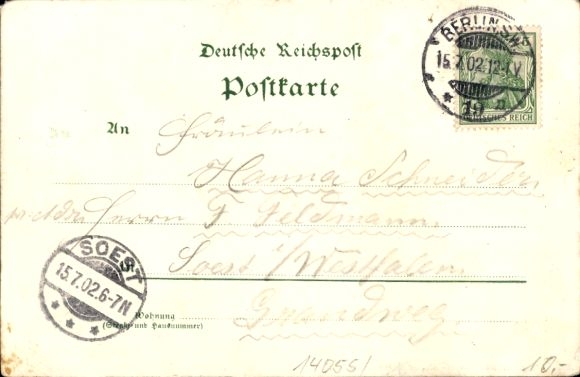 Deutsche Reichspost
Postkarte
BERLIN S.W.
15.7.02.12-1V
19 n
DEUTSCHES REICH
An Fräulein
Hanna Schneider
Herrn F. Feldmann
SOEST
15.7.02.6-7N
in
Soest i/Westfalen
Grandweg
Wohnung
(Straße und Hausnummer)
14055/
10.-